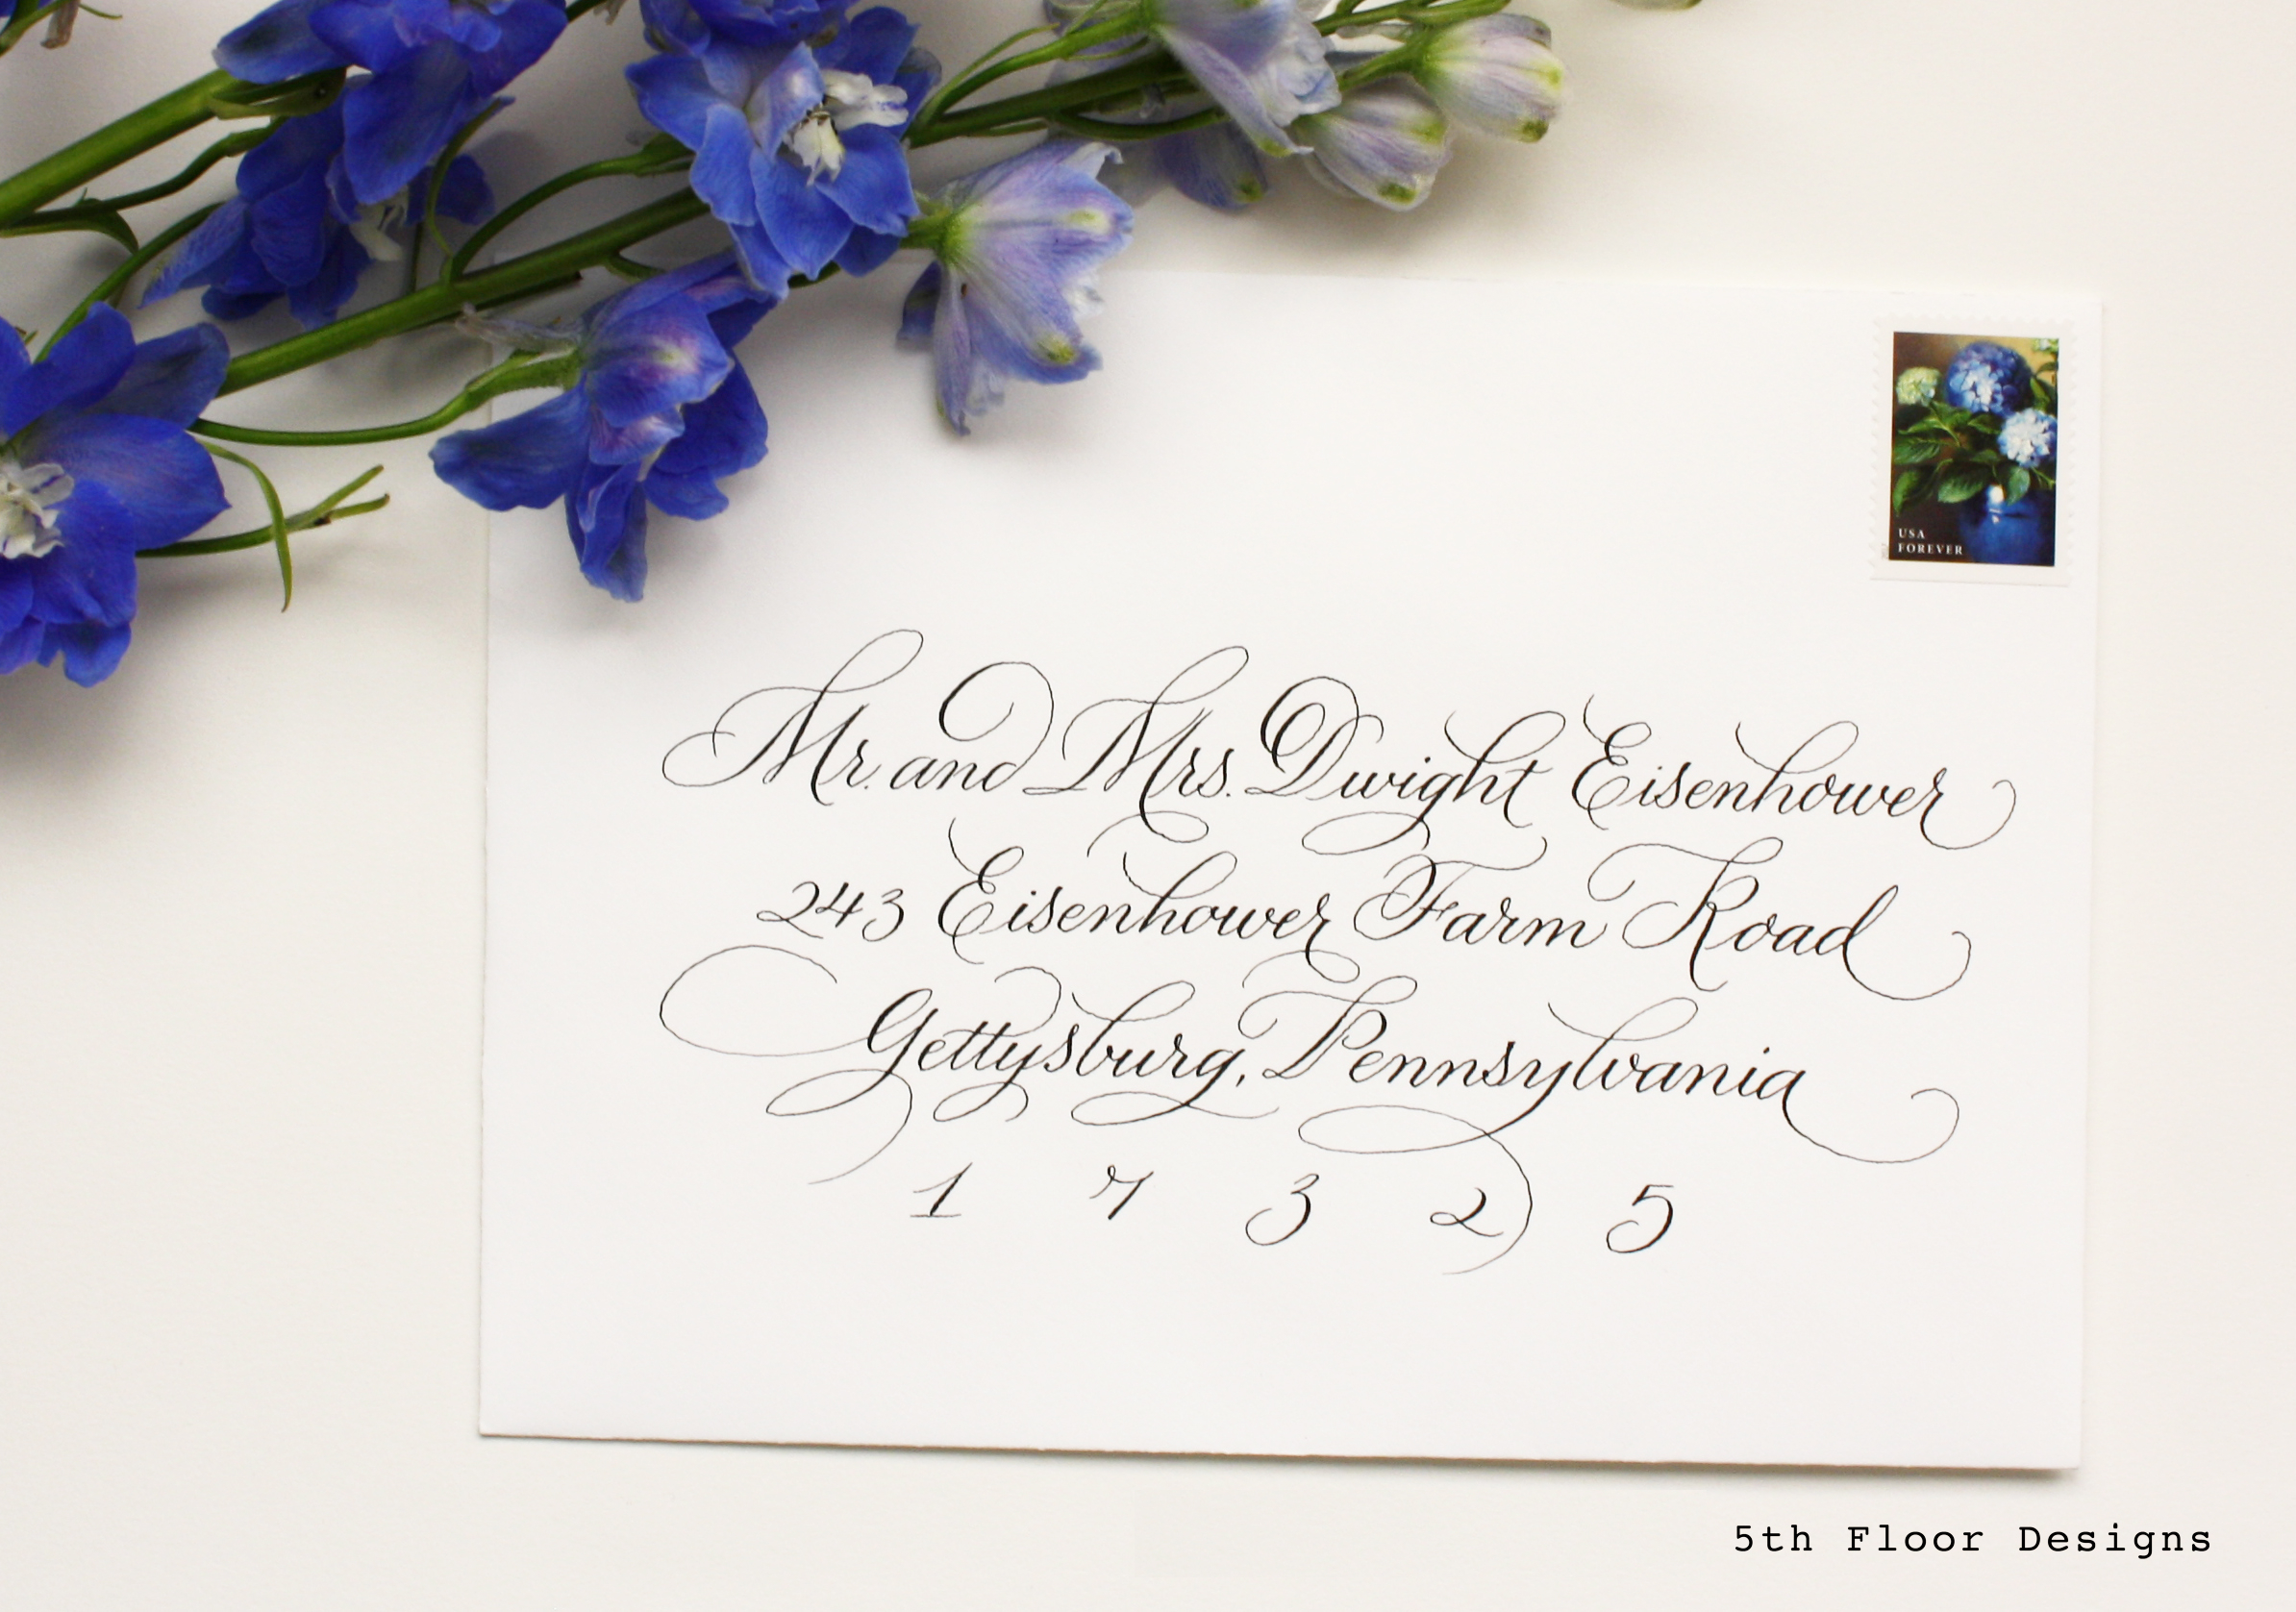 USA
FOREVER
Mr. and Mrs. Dwight Eisenhower
243 Eisenhower Farm Road
Gettysburg, Pennsylvania
1 7 3 2 5
5th Floor Designs